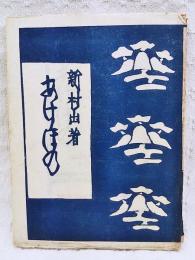 新村出著
あけぼの